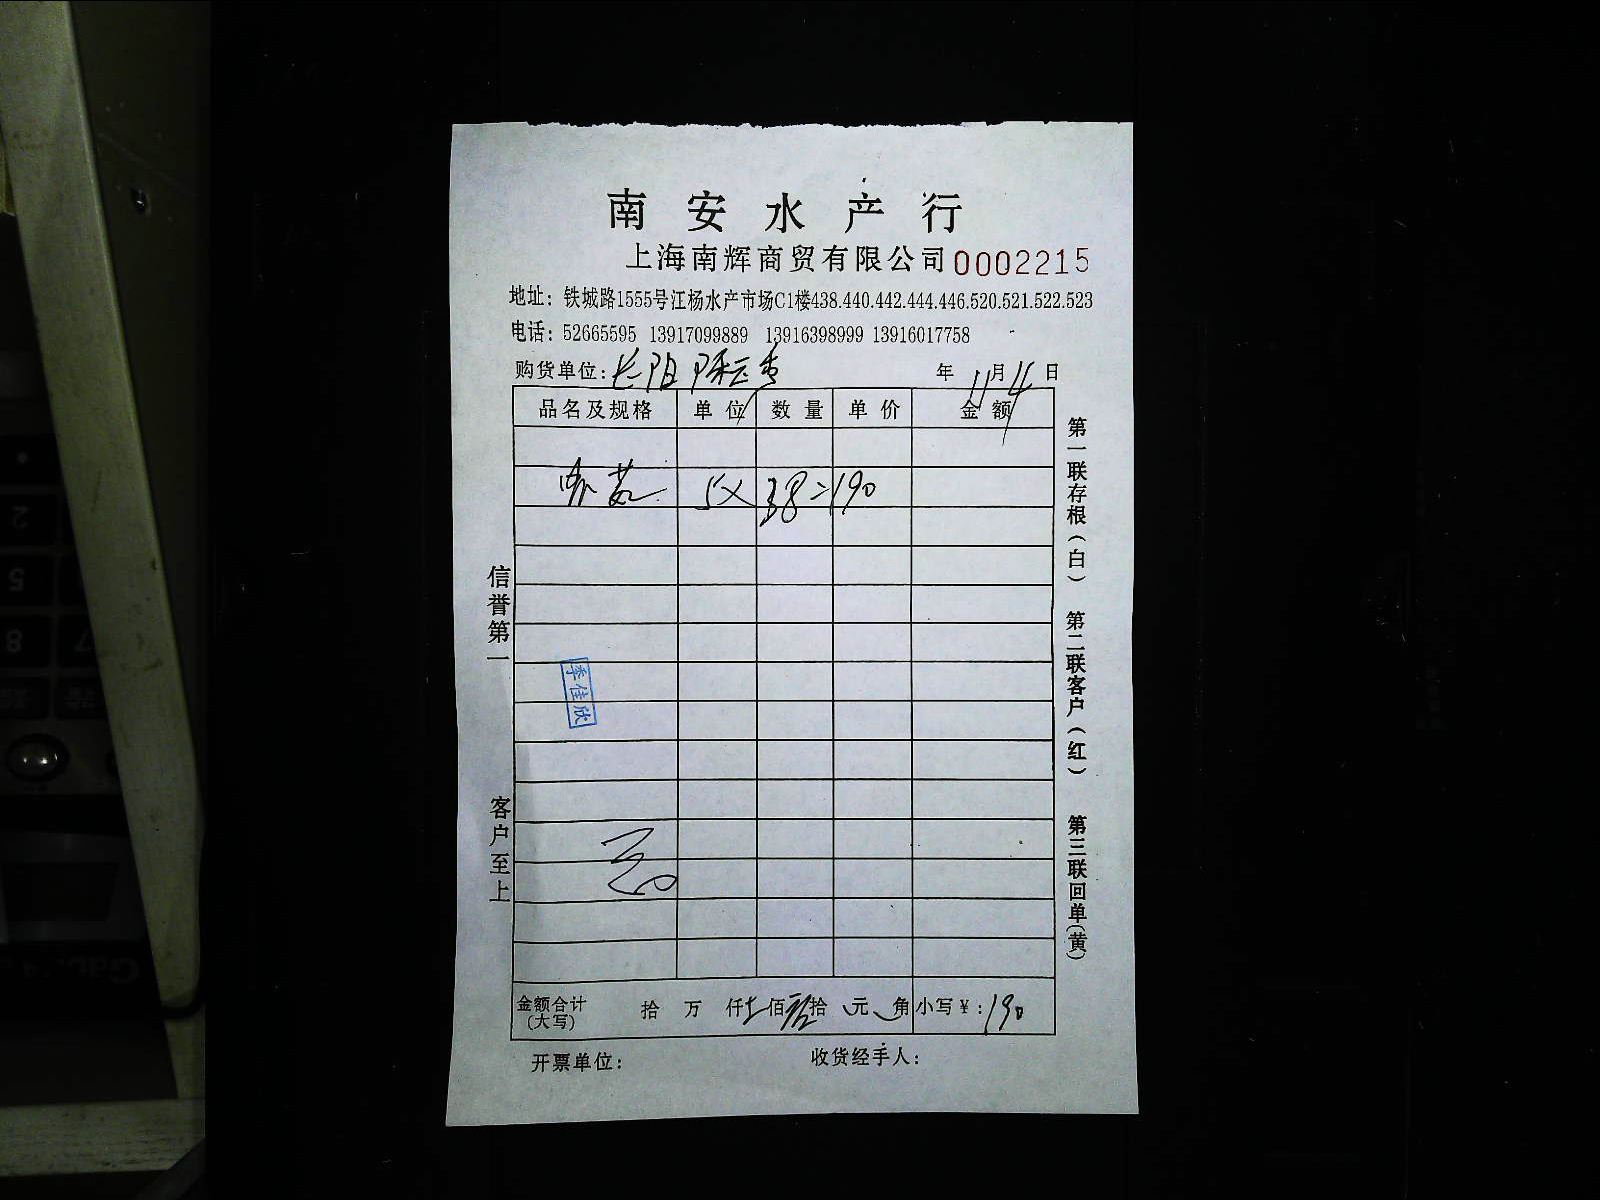 南安水产行
上海南辉商贸有限公司 0002215
地址：铁城路1555号江杨水产市场C1楼438.440.442.444.446.520.521.522.523
电话：52665595 13917099889 13916398999 13916017758
购货单位：长阳 年 11月 4日
品名及规格 单位 数量 单价 金额
5X 38=190
金额合计(大写) 拾 万 仟 佰 拾 元 角 小写¥：190
开票单位： 收货经手人：
信誉第一
客户至上
季佳欣
第一联存根(白)
第二联客户(红)
第三联回单(黄)